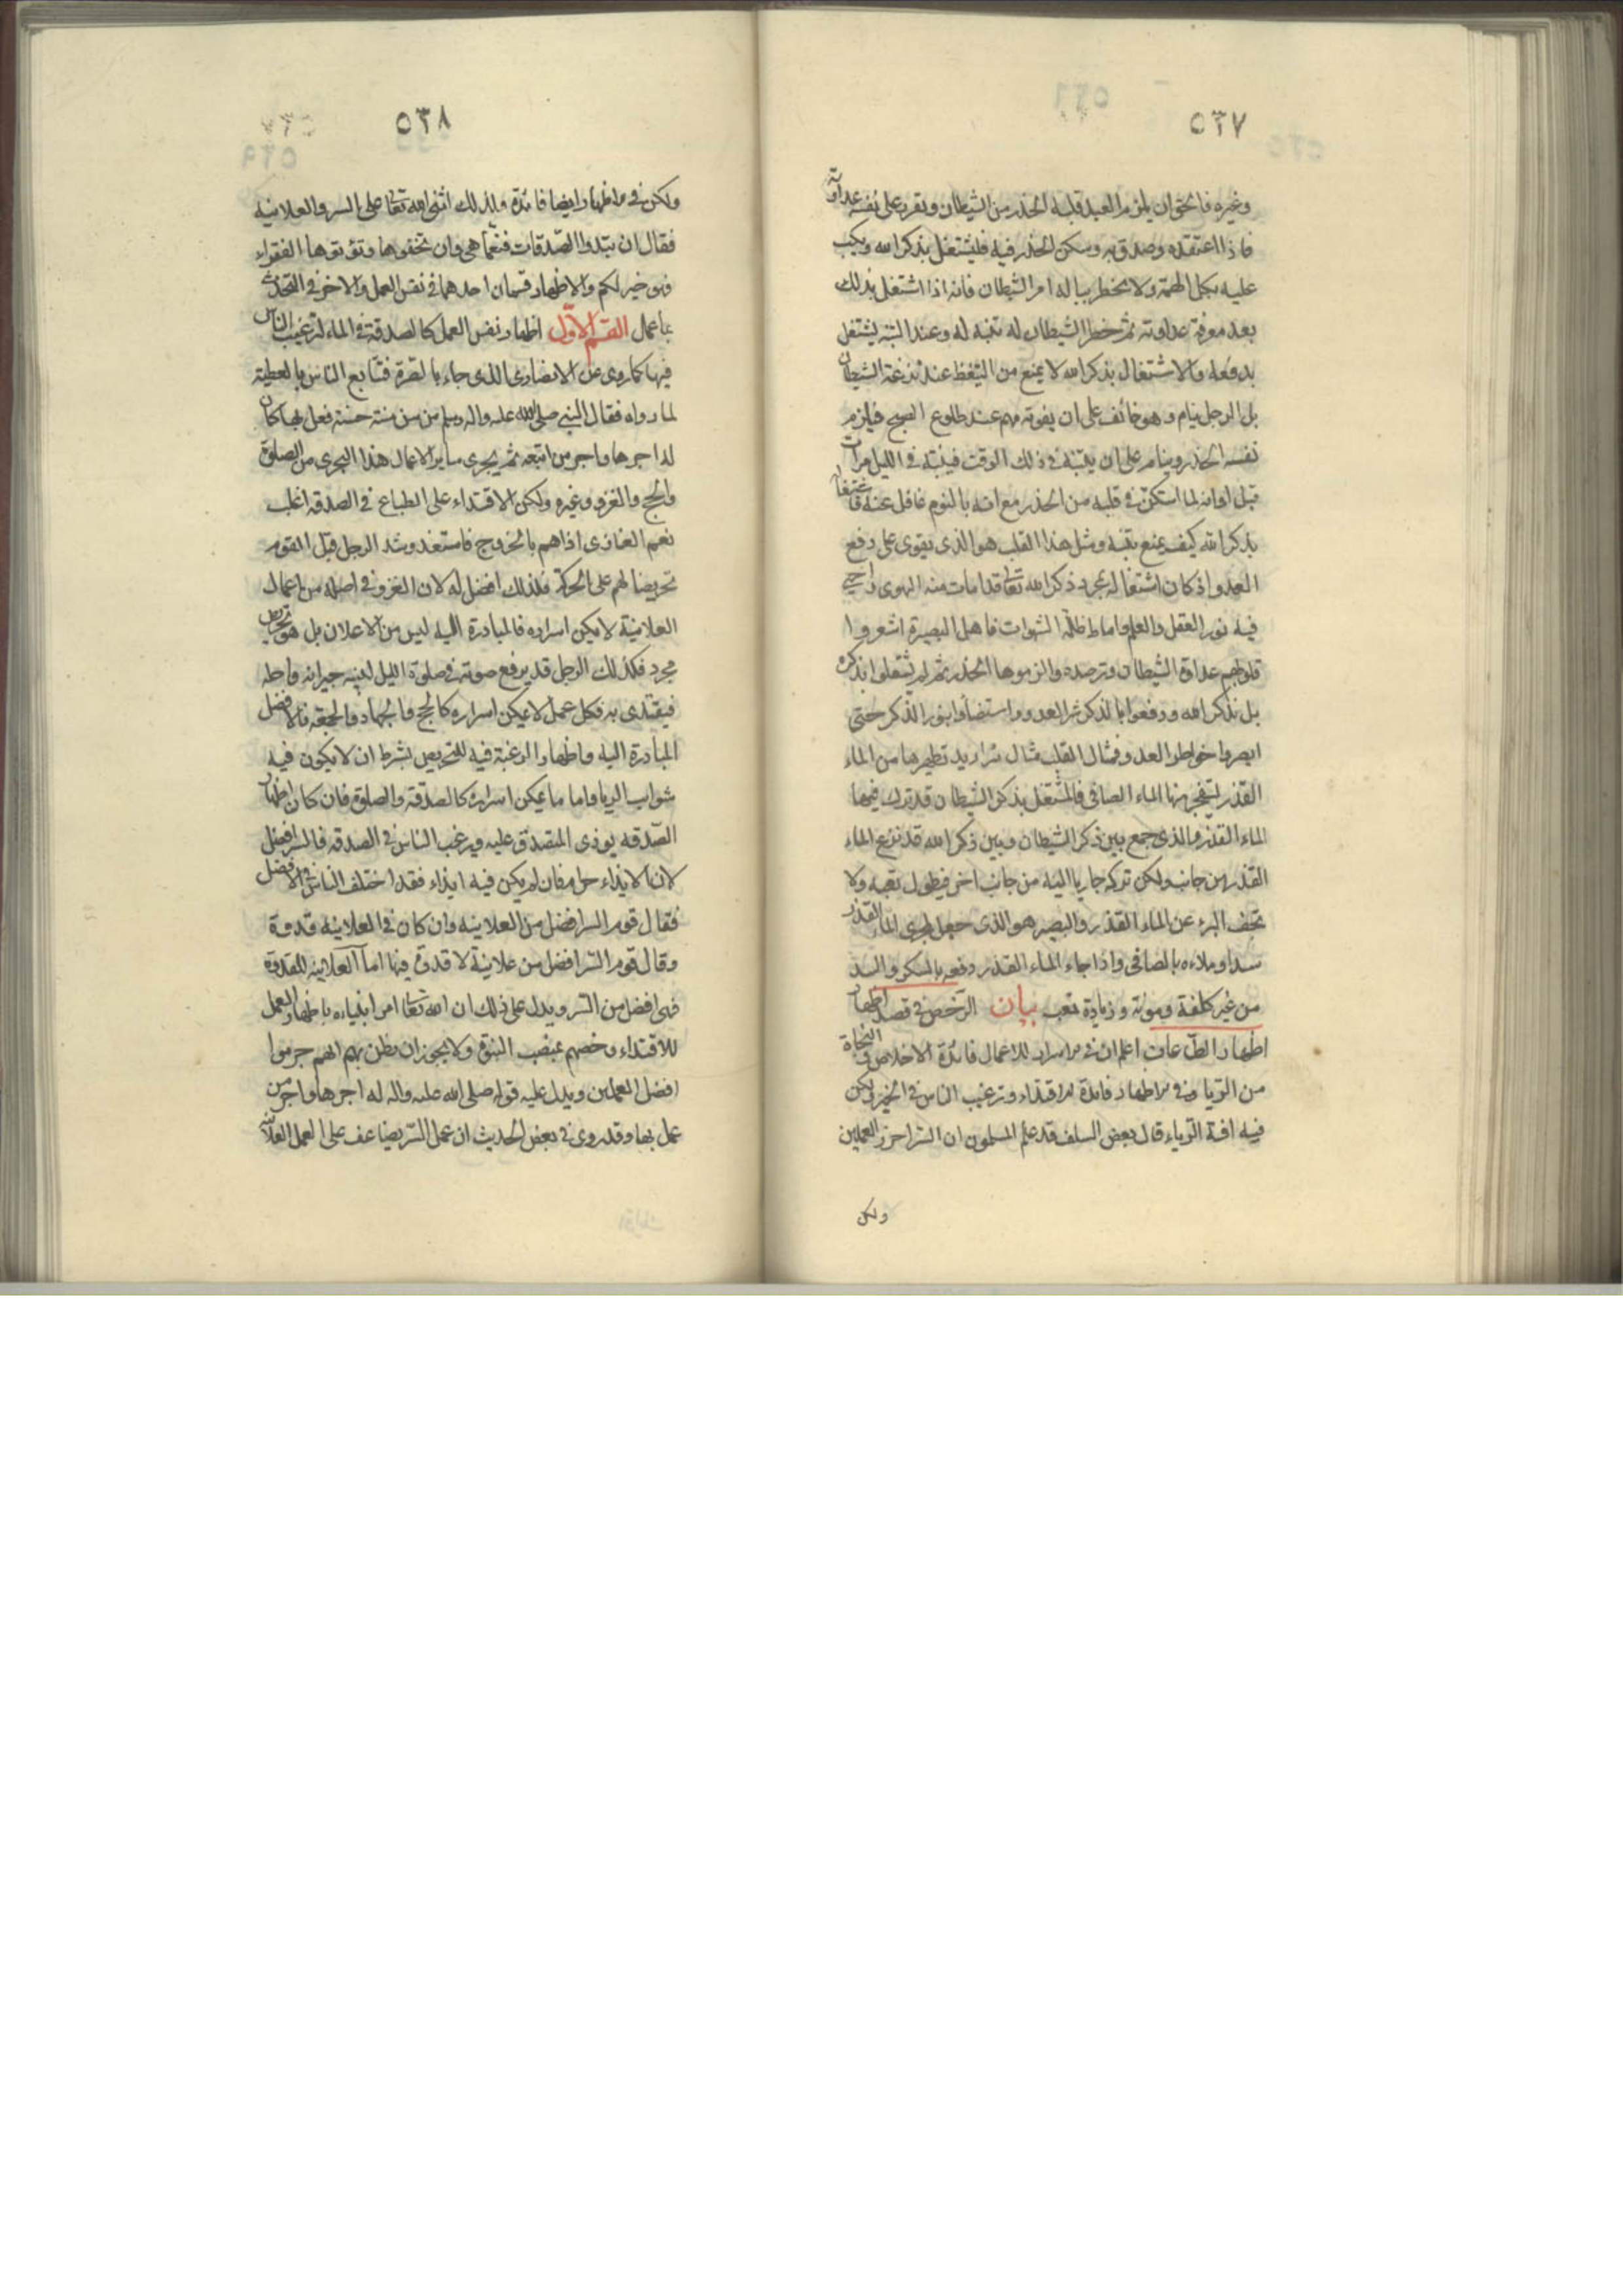 ٥٣٧
وغيره فالحق ان يلزم العبد قلبه الحذر من الشيطان ويقرر على نفسه عداوته
فاذا اعتقده وصدق به وسكن الحذر فيه فليشتغل بذكر الله ويكب
عليه بكل الهمة ولا يخطر بباله امر الشيطان فانه اذا اشتغل بذلك
بعد معرفة عداوته ثم خطر الشيطان له تنبه له وعند التنبه يشتغل
بدفعه والاشتغال بذكر الله لا يمنع من التيقظ عند نزغة الشيطان
بل الرجل ينام وهو خائف على ان يفوته مهم عند طلوع الصبح فيلزم
نفسه الحذر وينام على ان يتنبه في ذلك الوقت فينتبه في الليل مرات
قبل اوانه لما استكن في قلبه من الحذر مع انه بالنوم غافل عنه فاشتغاله
بذكر الله كيف يمنع تنبه ومثل هذا القلب هو الذي يقوى على دفع
العدو اذ كان اشتغاله بمجرد ذكر الله تعالى قد امات منه الهوى واحيى
فيه نور العقل والعلم واماط ظلمة الشهوات فاهل البصيرة اشعروا
قلوبهم عداوة الشيطان وترصده والزموها الحذر ثم لم يشتغلوا بذكره
بل بذكر الله ودفعوا بالذكر شر العدو واستضاؤا بنور الذكر حتى
ابصروا خواطر العدو فمثال القلب مثال بئر اريد تطهيرها من الماء
القذر ليتفجر منها الماء الصافي فالمشتغل بذكر الشيطان قد ترك فيها
الماء القذر والذي جمع بين ذكر الشيطان وبين ذكر الله قد نزع الماء
القذر من جانب ولكن تركه جاريا اليه من جانب اخر فيطول تعبه ولا
تجف البئر عن الماء القذر والبصير هو الذي جعل لمجرى الماء القذر
سدا وملاءه بالصافي واذا جاء الماء القذر دفعه بالسكر والسد
من غير كلفة ومونة وزيادة تعب بيان الرخص في قصد اظهار
اظهار الطاعات اعلم ان في الاسرار للاعمال فائدة الاخلاص والنجاة
من الرياء وفي الاظهار فايدة الاقتداء وترغيب الناس في الخير ولكن
فيه افة الرياء قال بعض السلف قد علم المسلمون ان السر احرز العملين
ولكن
٥٣٨
ولكن في الاظهار ايضا فائدة ولذلك اثنى الله تعالى على السر والعلانية
فقال ان تبدوا الصدقات فنعما هي وان تخفوها وتؤتوها الفقراء
فهو خير لكم والاظهار قسمان احدهما في نفس العمل والاخر في التحدث
بما عمل القسم الاول اظهار نفس العمل كالصدقة في الملاء لترغيب الناس
فيها كما روي عن الانصاري الذي جاء بالصرة فتتابع الناس بالعطية
لما راوه فقال النبي صلى الله عليه واله وسلم من سن سنة حسنة فعمل بها كان
له اجرها واجر من اتبعه ثم يجري ساير الاعمال هذا المجرى من الصلوة
والحج والغزو وغيره ولكن الاقتداء على الطباع في الصدقة اغلب
نعم الغازي اذا هم بالخروج فاستعد وشد الرحل قبل القوم
تحريضا لهم على الحركة فذلك افضل له لان الغزو في اصله من اعمال
العلانية لا يمكن اسراره فالمبادرة اليه ليس من الاعلان بل هو تحريض
مجرد فكذلك الرجل قد يرفع صوته في صلوة الليل لينبه جيرانه واهله
فيقتدى به فكل عمل لا يمكن اسراره كالحج والجهاد والجمعة فالافضل
المبادرة اليه واظهار الرغبة فيه للتحريض بشرط ان لا يكون فيه
شوايب الريا واما ما يمكن اسراره كالصدقة والصلوة فان كان اظهار
الصدقة يوذي المتصدق عليه ويرغب الناس في الصدقة فالسر افضل
لان الايذاء حرام فان لم يكن فيه ايذاء فقد اختلف الناس في الافضل
فقال قوم السر افضل من العلانية وان كان في العلانية قدوة
وقال قوم السر افضل من علانية لا قدوة فيها اما العلانية للقدوة
فهي افضل من السر ويدل على ذلك ان الله تعالى امر انبياءه باظهار العمل
للاقتداء وخصهم بمنصب النبوة ولا يجوز ان يظن بهم انهم حرموا
افضل العملين ويدل عليه قوله صلى الله عليه واله له اجرها واجر من
عمل بها وقد روى في بعض الحديث ان عمل السر يضاعف على العمل العلانية